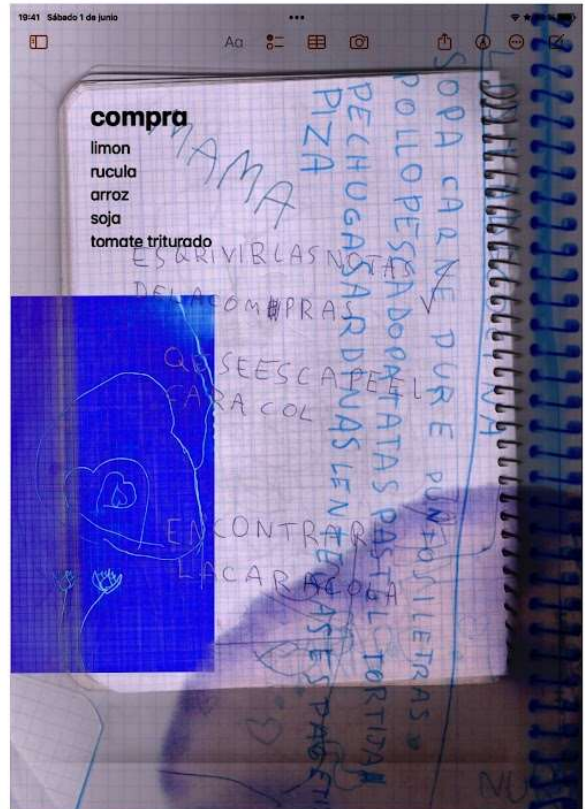 19:41 Sábado 1 de junio
Aa
compra
limon
rucula
arroz
soja
tomate triturado
MAMA
ESQRIVIRLASNOTAS
DELACOMPRAS
QESEESCAPEEL
CARACOL
ENCONTRAR
LACARACOLA
SOPA CARNE PURE PUNTOSILETRAS
POLLO PESCADO PATATAS PASTEL TORTIJA
PECHUGA SARDINAS LENTEJAS ESPAGETI
PIZA